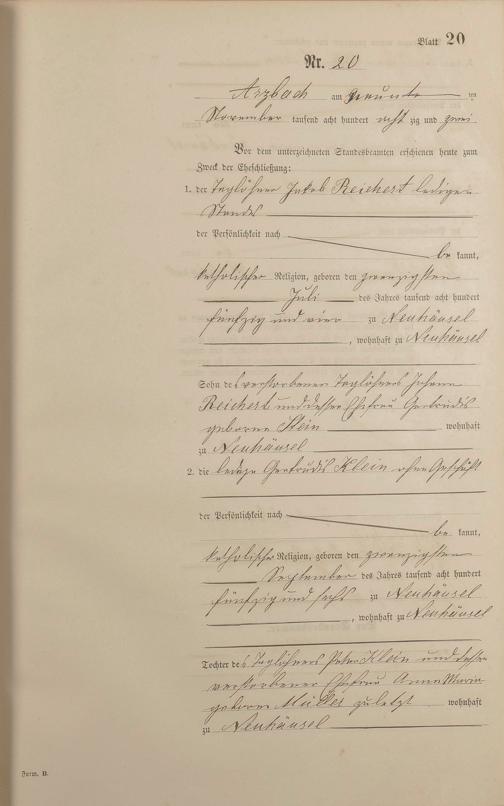 Blatt 20
Nr. 20
Arzbach am neunten
November tausend acht hundert acht zig und zwei
Vor dem unterzeichneten Standesbeamten erschienen heute zum
Zweck der Eheschließung:
1. der Taglöhner Jakob Reichert ledigen
Standes
der Persönlichkeit nach
be kannt,
katholischer Religion, geboren den zwanzigsten
Juli des Jahres tausend acht hundert
fünfzig und vier zu Neuhäusel
, wohnhaft zu Neuhäusel
Sohn des verstorbenen Taglöhners Johann
Reichert und dessen Ehefrau Gertrudis
geborne Stein wohnhaft
zu Neuhäusel
2. die ledige Gertrudis Klein ohne Geschäft
der Persönlichkeit nach
be kannt,
katholischer Religion, geboren den zwanzigsten
September des Jahres tausend acht hundert
fünfzig und sechs zu Neuhäusel
, wohnhaft zu Neuhäusel
Tochter des Taglöhners Peter Klein und dessen
verstorbenen Ehefrau Anna Maria
geborne Müller zuletzt wohnhaft
zu Neuhäusel
Form. B.